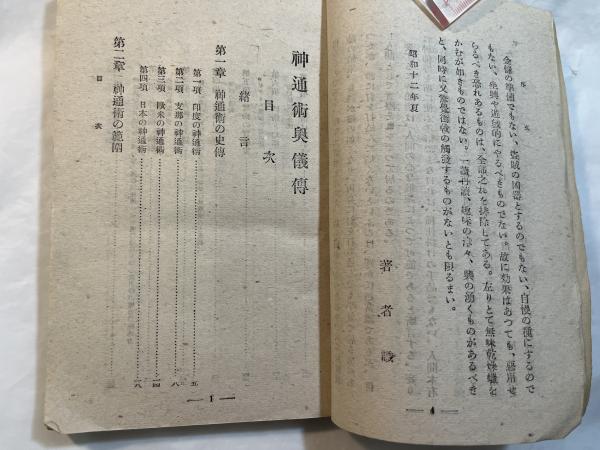 序文
金儲の準備でもない、盜賊の兇器とするのでもない、自慢の種にするので
もない、座興や遊戯的にやるべきものでない。故に効果はあつても、惡用せ
らるべき恐れあるものは、全部之れを排除してある。左りとて無味乾燥蠟を
かむが如きものではない。一讀再讀、趣味の津々、興の湧くものがあるべき
と、同時に又
の觸發するものがないとも限るまい。
昭和十二年夏
著者識
— 4 —
神通術奧儀傳
目次
緒言
第一章 神通術の史傳
第一項 印度の神通術……五
第二項 支那の神通術……八
第三項 歐米の神通術……一四
第四項 日本の神通術……一八
第二章 神通術の範圍
目次
— 1 —